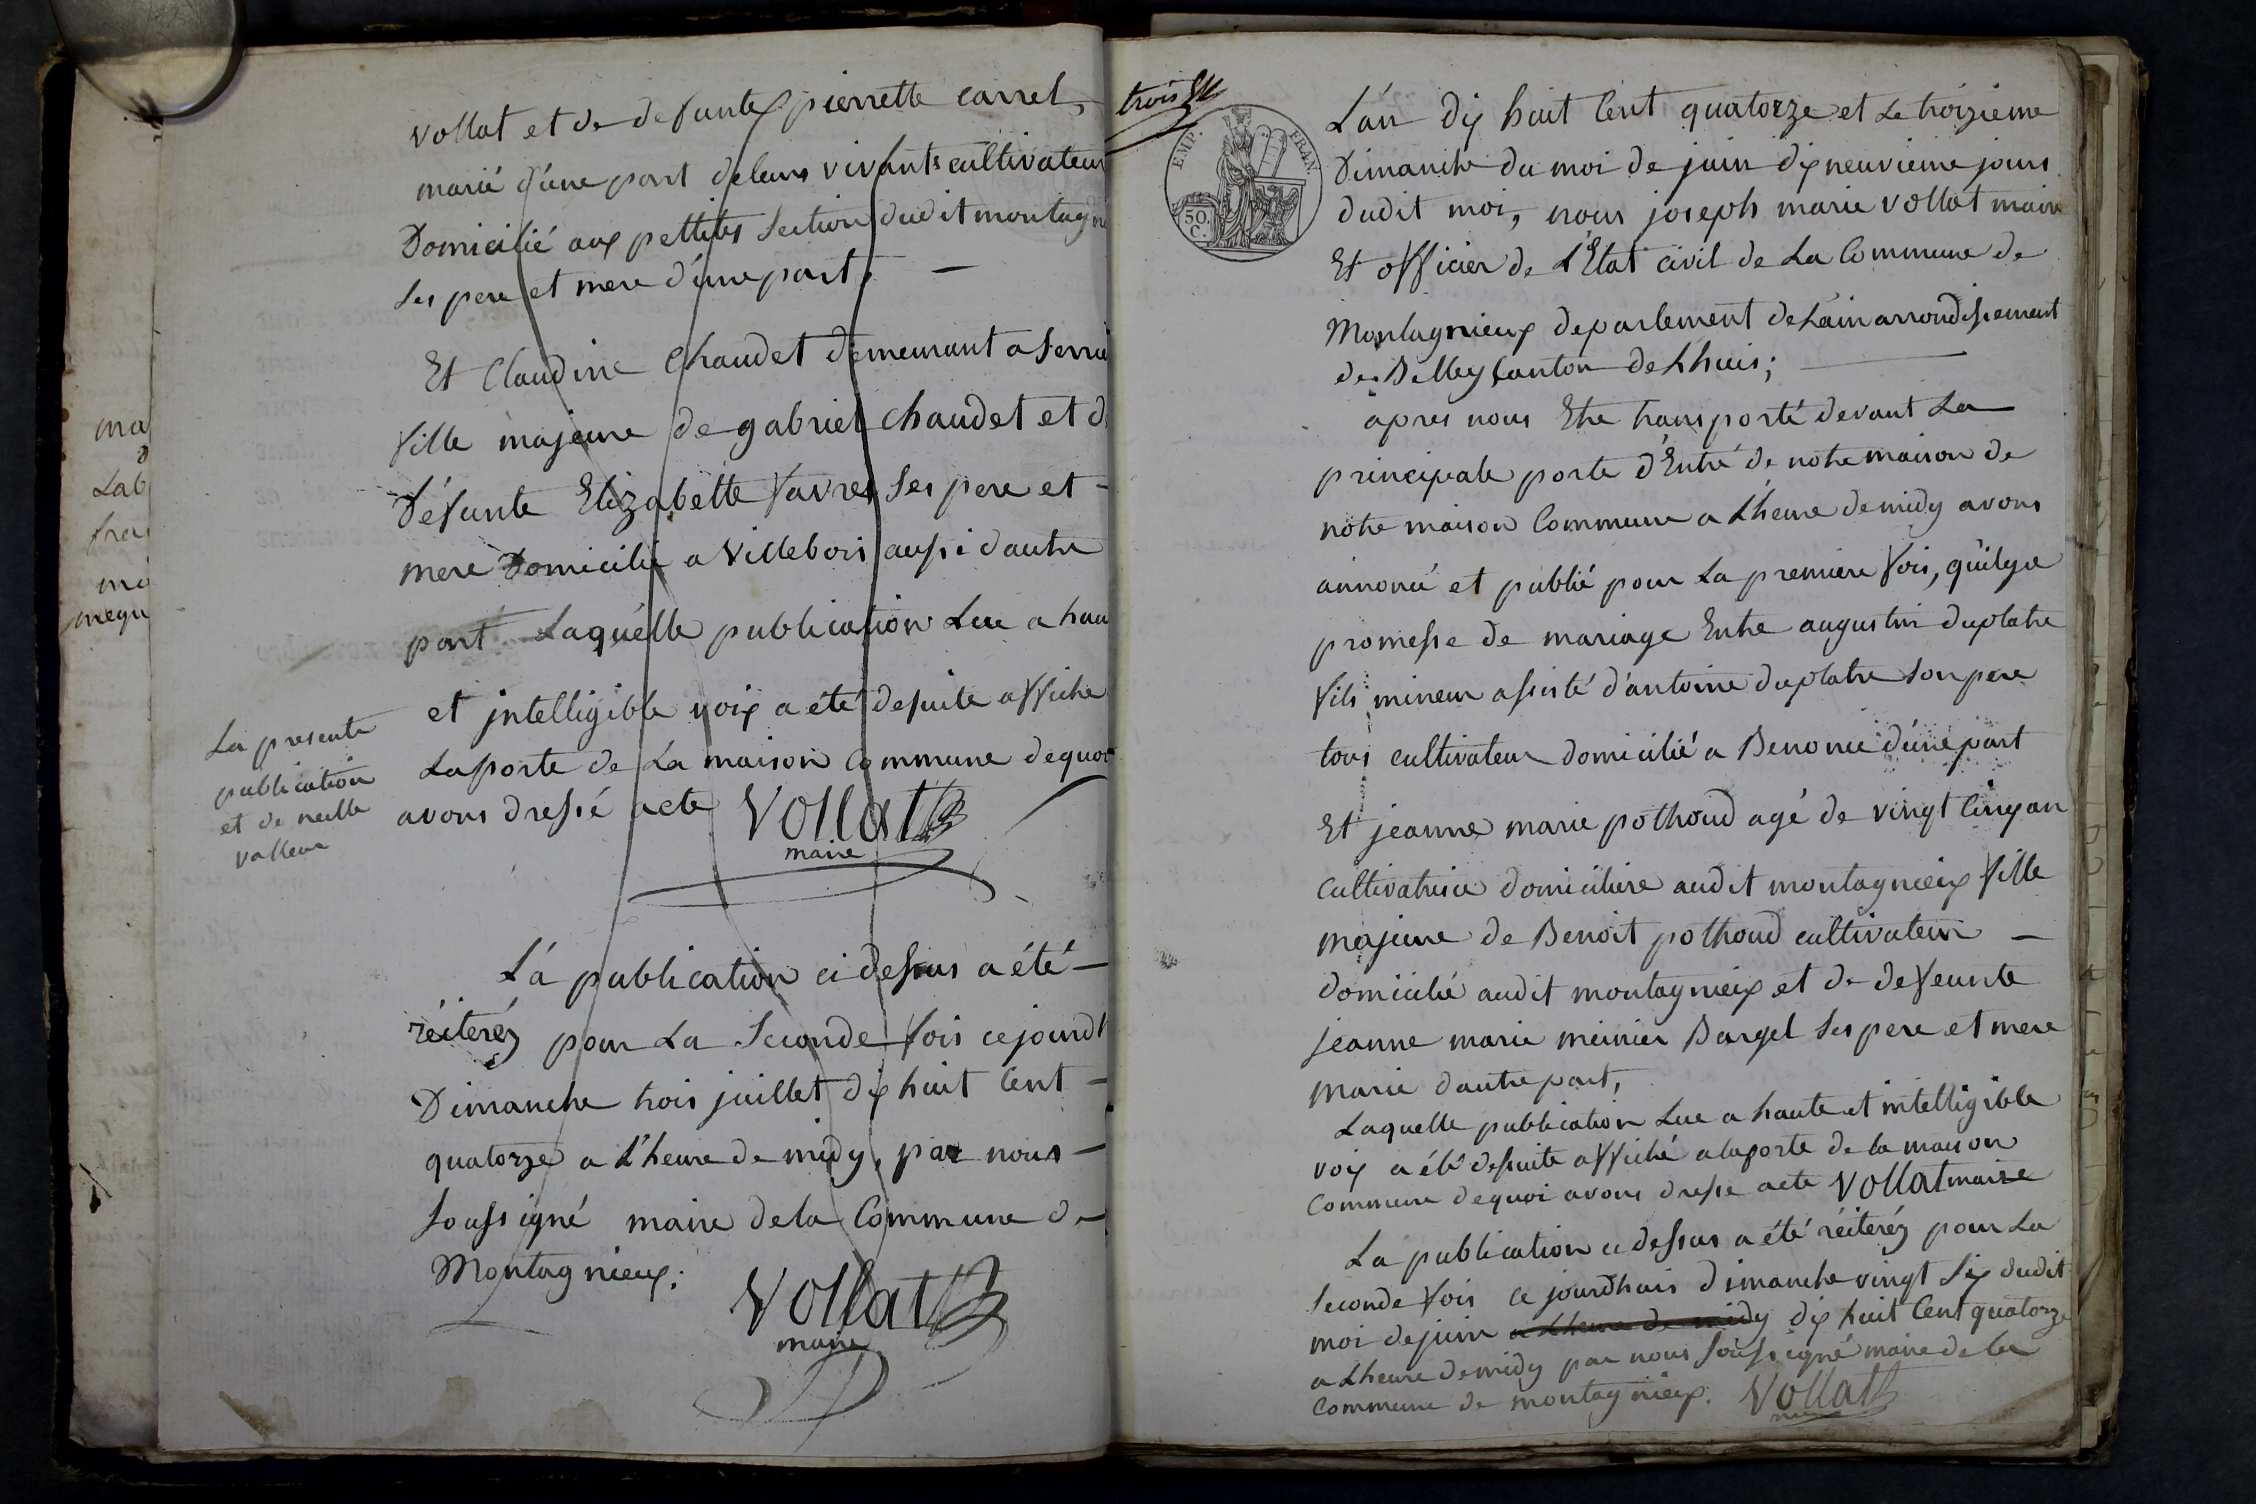 vollat et de defunte pierrette carret,
marié d'une part deleurs vivants cultivateur
Domicilié aux pettites Section dudit montagni
ses pere et mere d'une part, —
Et Claudine Chaudet demeurant a
fille majeure de gabriel chaudet et d
Défunte Elizabette favre ses pere et -
mere Domicilié a Villebois aussi dautre
part Laquélle publication Lue a hau
et jntelligible voix a été desuite affiche
Laporte de La maison Commune dequoi
avons dressé acte Vollat
maire
La presente
publication
et de nulle
valleur
Lá publication ci dessus a été —
réiteréz pour La Seconde fois cejourdh
Dimanche trois juillet dix huit Cent —
quatorze a L'heure de midy, par nous —
Soussigné maire dela Commune de
Montagnieux;
Vollat
maire
ma
Lab
fra
mequ
trois
EMP. FRAN.
50.
C.
L'án dix huit Cent quatorze et Le troizieme
Dimanche du moi de juin dix neuvieme jours
dudit moi, nous joseph marie vollat maire
Et officier de L'Etat civil de La Commune de
Montagnieux departement deLain arrondissement
de Belley Canton deLhuis;
apres nous Etre transporté devant La
principale porte d'Entré de notre maison de
notre maison Commune a Lheure demidy avons
annoncé et publié pour La premiere fois, quilya
promesse de mariage Entre augustin duplatre
fils mineur assisté d'antoine duplatre son pere
tous cultivateur domicilié a Benonce d'une part
Et jeanne marie pothoud agé de vingt Cinq an
cultivatrice domiciliere audit montagnieux fille
majeure de Benoit pothoud cultivateur —
domicilié audit montagnieux et de defeunte
jeanne marie meinier Bargel ses pere et mere
Marie dautre part,
Laquelle publication Lue a haute et intelligible
voix a été desuite affiché alaporte de la maison
Commune dequoi avons dressé acte Vollat maire
La publication ci dessus a été réiteréz pour La
Seconde fois ce jourdhuis dimanche vingt Six dudit
moi dejuin a Lheure de midy dix huit Cent quatorze
a Lheure demidy par nous soussigné maire de la
Commune de montagnieux. Vollat